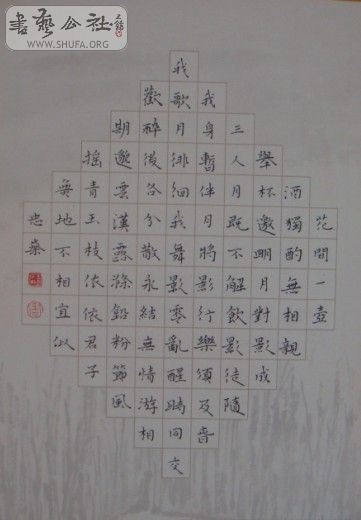 書藝公社
WWW.SHUFA.ORG
花間一壺
酒獨酌無相親
舉杯邀明月對影成
三人月既不解飲影徒隨
我身暫伴月將影行樂須及春
我歌月徘徊我舞影零亂醒時同交
歡醉後各分散永結無情游相
期邈雲漢露滌鉛粉節風
摇青玉枝依依君子
無地不相宜似
忠